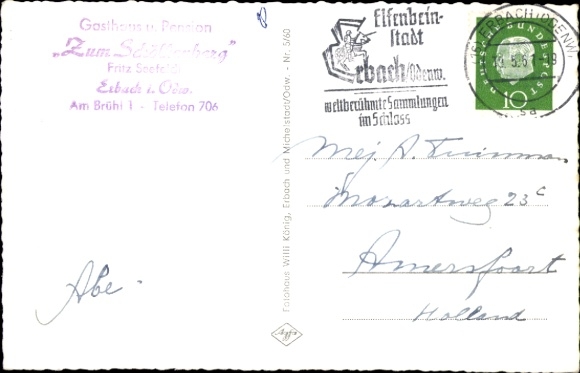 Gasthaus u. Pension
"Zum Schützenberg"
Fritz Seefeld
Erbach i. Odw.
Am Brühl 1 - Telefon 706
Elfenbein-
stadt
Erbach/Odenw.
weltberühmte Sammlungen
im Schloss
ERBACH (ODENW)
DEUTSCHE BUNDESPOST
10
Mej. A. Tuinman
Mozartweg 23c
Amersfoort
Holland
Abe.
Fotohaus Willi König, Erbach und Michelstadt/Odw. - Nr. 5/60
Agfa